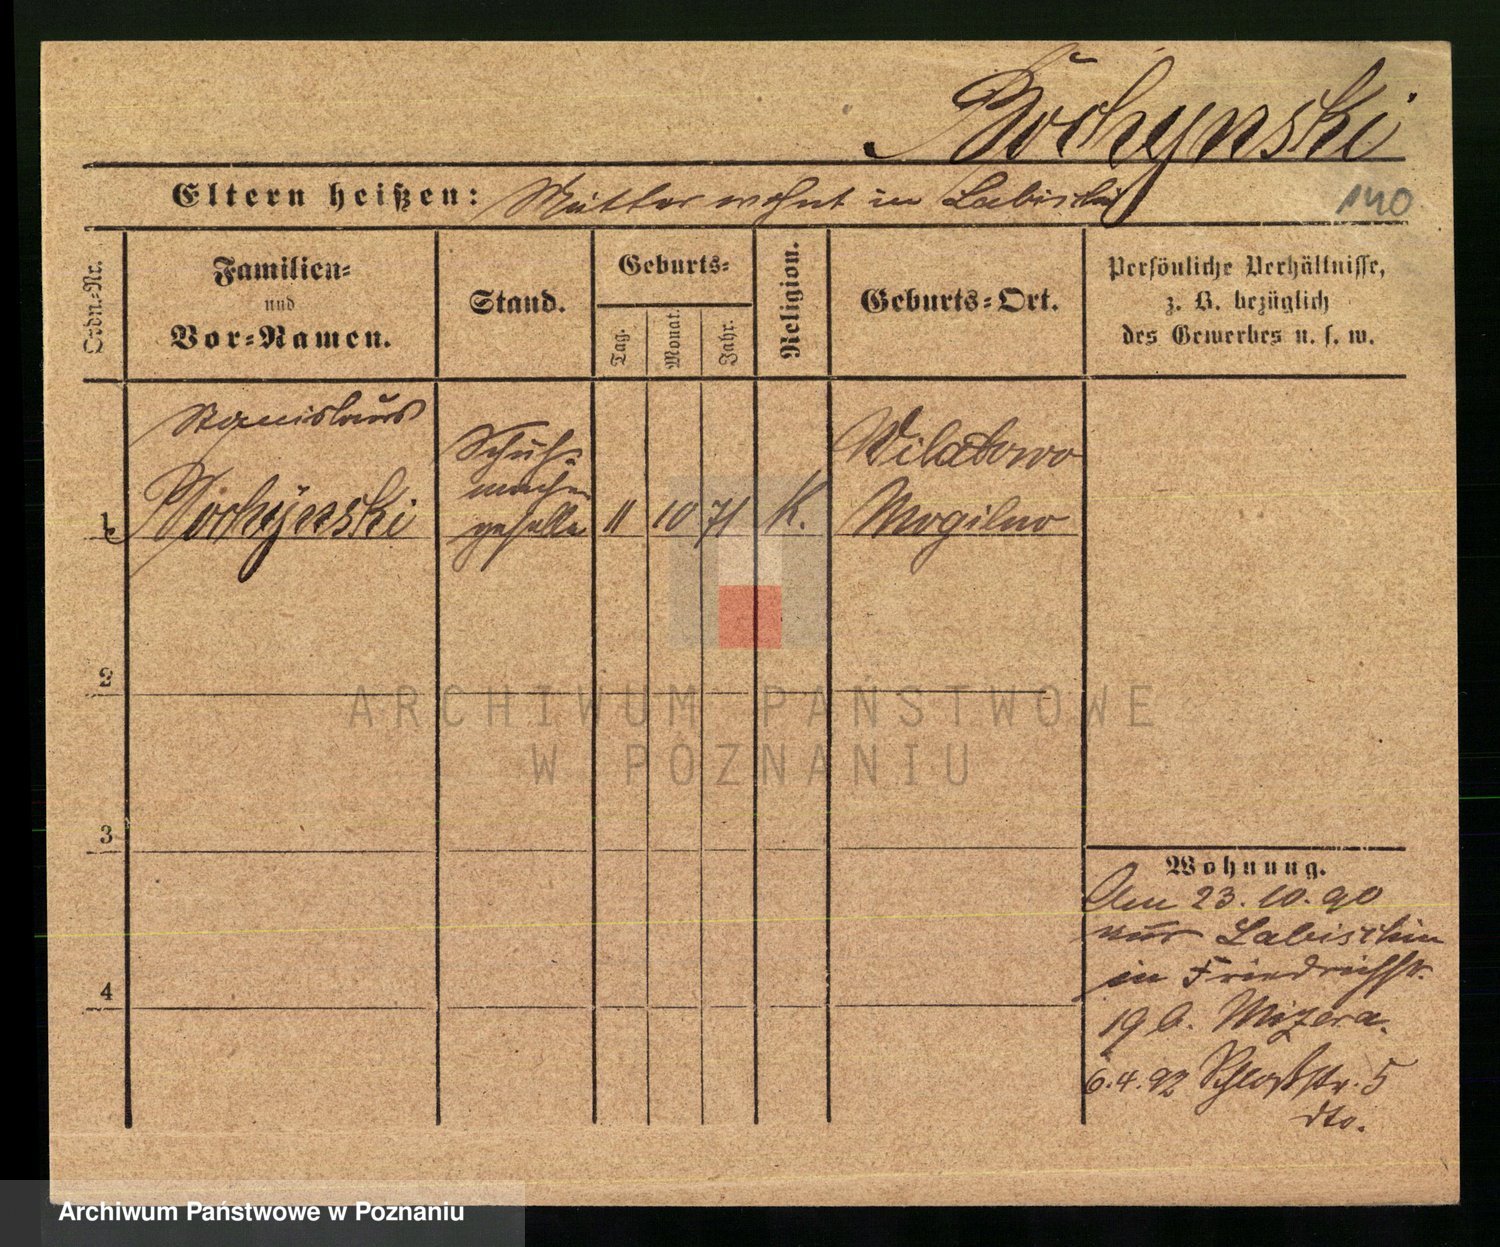 Bochynski
Eltern heißen: Mutter wohnt in Labischin
140
Ordn.-Nr.
Familien-
und
Vor-Namen.
Stand.
Geburts-
Tag.
Monat.
Jahr.
Religion.
Geburts-Ort.
Persönliche Verhältnisse,
z. B. bezüglich
des Gewerbes u. s. w.
1
Stanislaus
Bochynski
Schuh-
macher
geselle
11
10
71
K.
Wilatowo
Mogilno
2
3
4
Wohnung.
Am 23. 10. 90
aus Labischin
in Friedrichstr.
19 b. Mizera.
6.4.92 Schloßstr. 5
dto.
ARCHIWUM PAŃSTWOWE
W POZNANIU
Archiwum Państwowe w Poznaniu